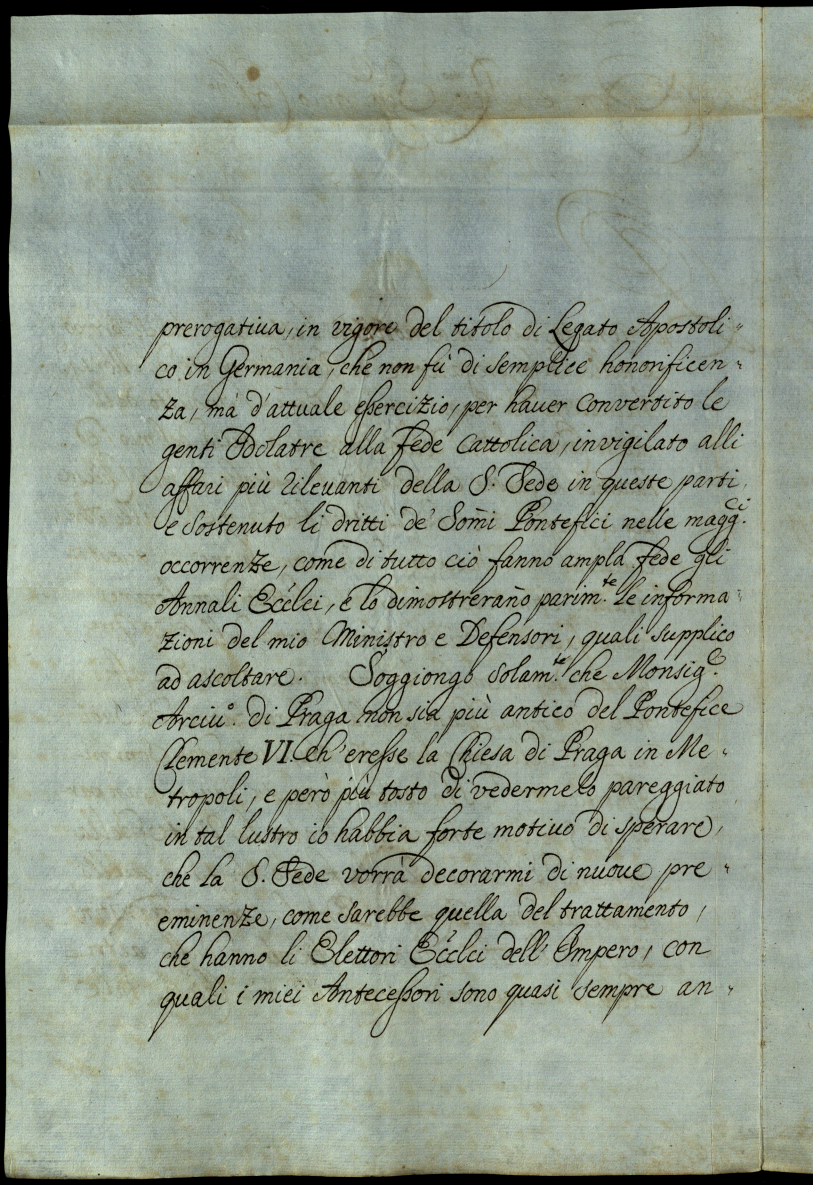 prerogatiua, in vigore del titolo di Legato Apostoli„
co in Germania, che non fù di semplice honorificen„
za, mà d'attuale essercizio, per hauer convertito le
genti Idolatre alla fede Cattolica, invigilato alli
affari più rileuanti della S. Sede in queste parti,
e sostenuto li dritti de' Som̃i Pontefici nelle magg.ci
occorrenze, come di tutto ciò fanno ampla fede gli
Annali Eccľei, e lo dimostrerañ̃o parim.te le informa„
zioni del mio Ministro e Defensori, quali supplico
ad ascoltare. Soggiongo solam.te che Monsig.e
Arciu.o di Praga non sia più antico del Pontefice
Clemente VI. ch'eresse la Chiesa di Praga in Me„
tropoli, e però più tosto di vedermelo pareggiato
in tal lustro io habbia forte motiuo di sperare,
che la S. Sede vorrà decorarmi di nuoue pre„
eminenze, come sarebbe quella del trattamento,
che hanno li Elettori Eccľei dell'Impero, con
quali i miei Antecessori sono quasi sempre an„